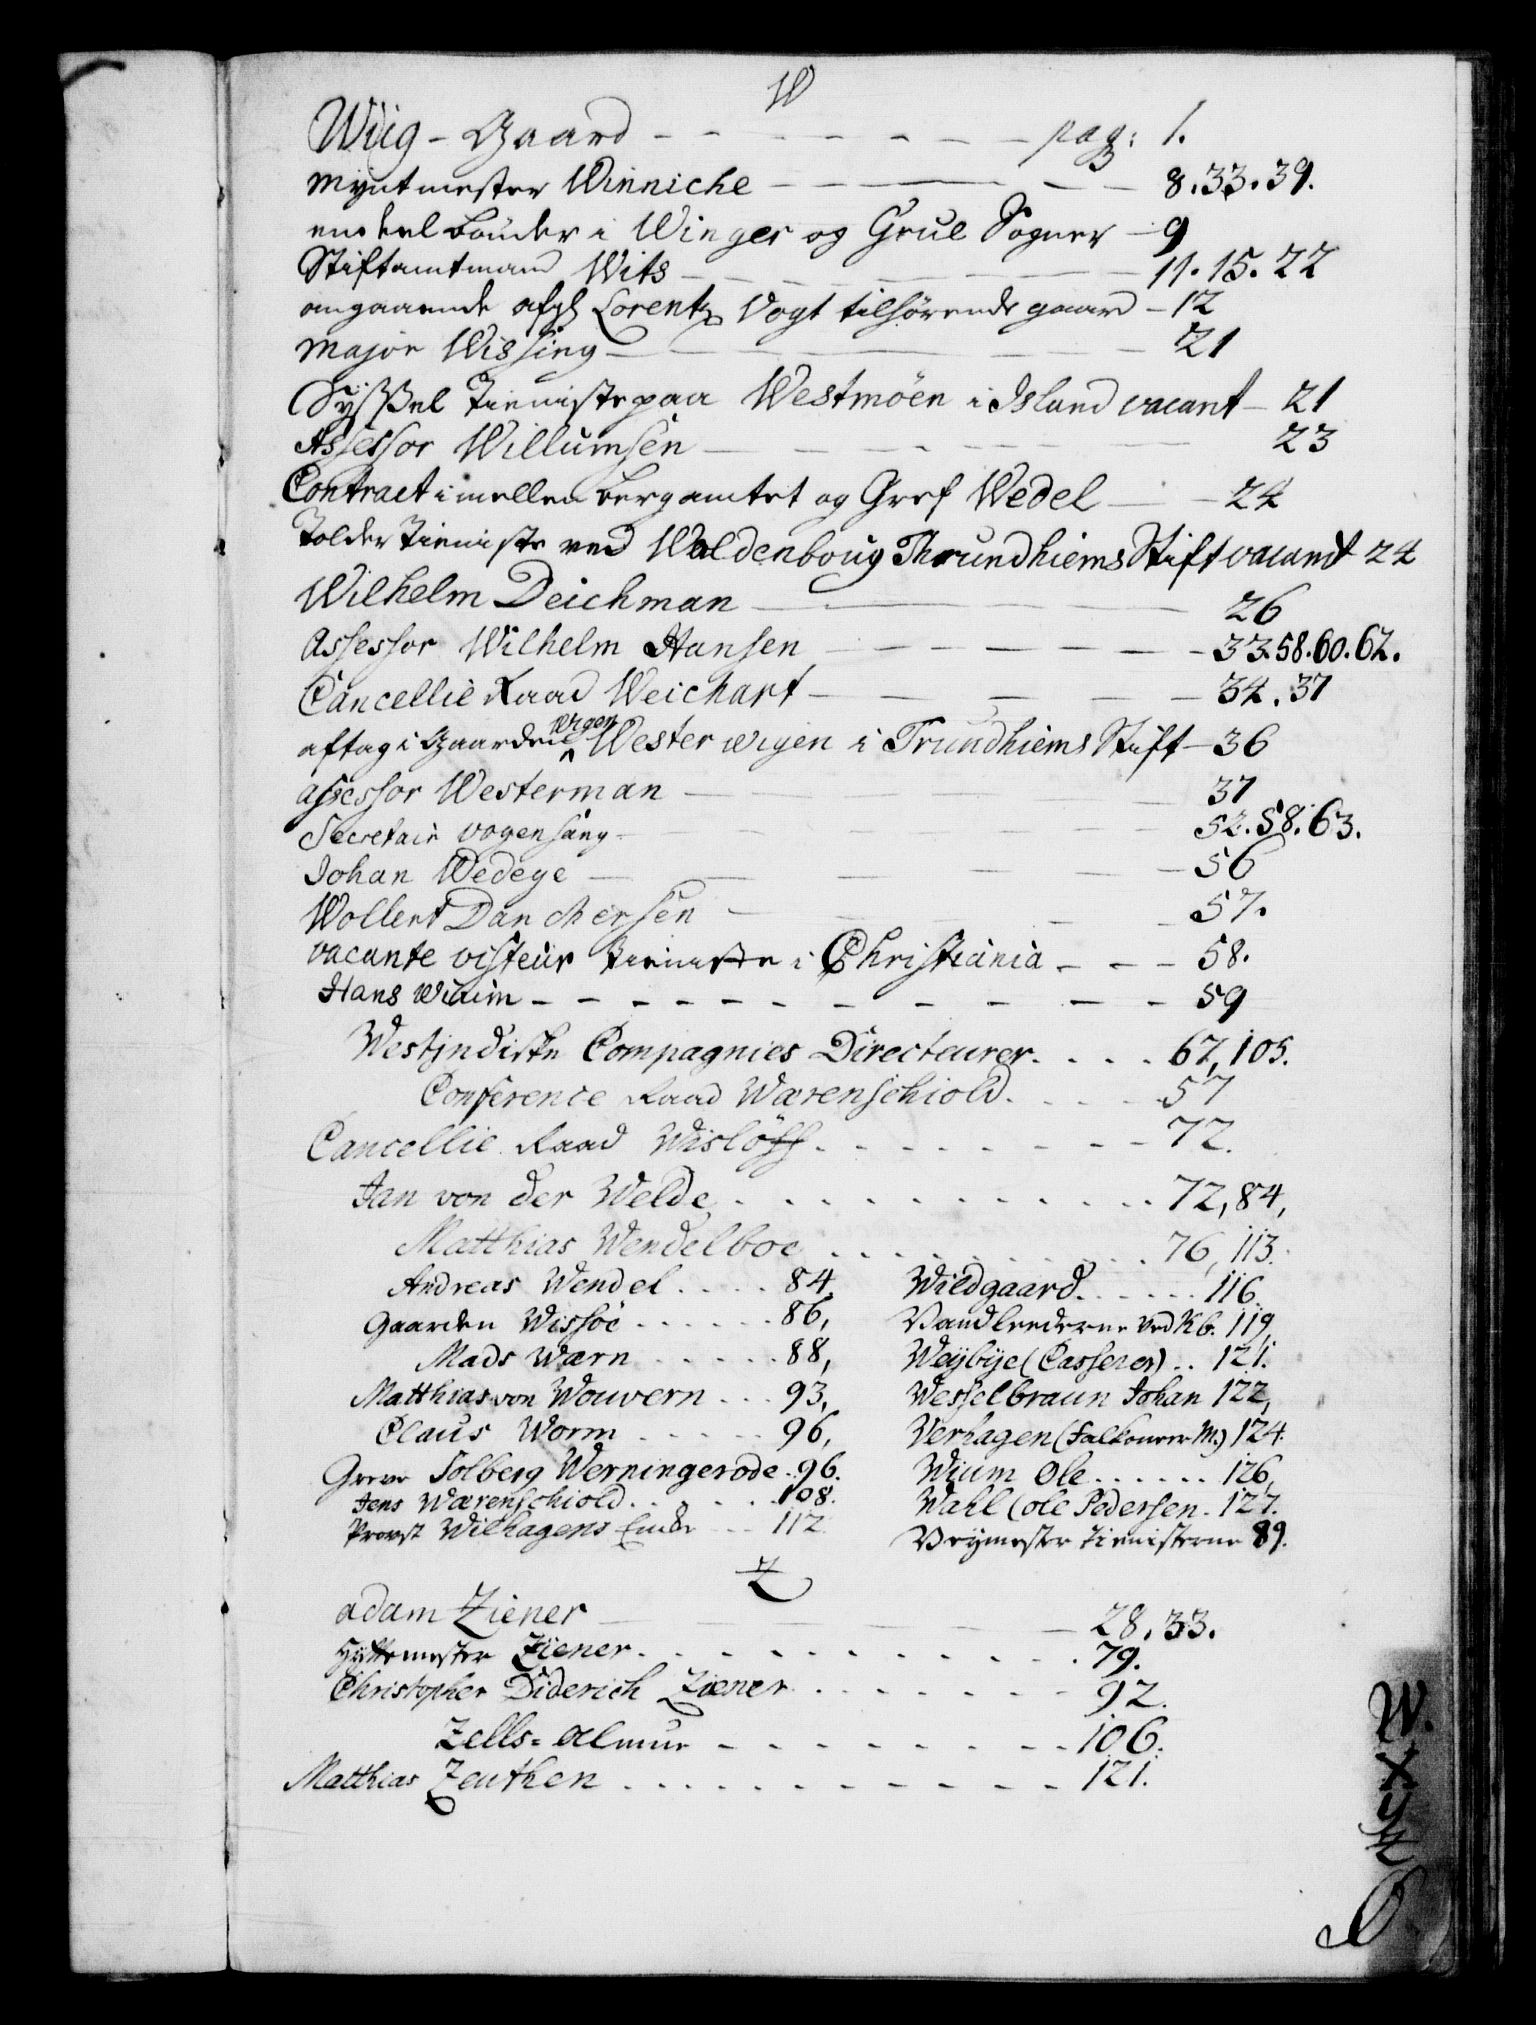 W
Wiig - Gaard - - - - - - pag: 1.
Myntmester Winniche - - - - 8.33.39.
en deel bønder i Winger og Grue Sogner - 9
Stiftamtmand Wits - - - - 11.15.22
angaaende afg: Lorentz Vogt tilhørende gaard - 12
Major Wissing - - - - 21
Sysszel Tieniste paa Westmöen i Island vacant - 21
Assessor Willumsen - - - - 23
Contract imellen bergamtet og Gref Wedel - - 24
Tolder Tieniste ved Waldenboug Thrundhiems Stift vacant 24
Wilhelm Deichman - - - - 26
Assessor Wilhelm Hansen - - - - 33.58.60.62.
Cancellie Raad Weichart - - - - 34.37
aftag i Gaarden wigen Wester wigen i Trundhiems Stift - 36
assessor Westerman - - - - 37
Secretair Vogensang - - - - 52.58.63.
Johan Wedege - - - - 56
Wollert Danchersen - - - - 57.
vacante visiteur tieniste i Christiania - - - 58.
Hans Wium - - - - - - 59
Westindiske Compagnies Directeurer . . . . 67, 105.
Conference Raad Wærenschiold. . . . . 57
Cancellie Raad Wislöff . . . . . . . 72.
Jan von der Welde . . . . . . . 72, 84,
Matthias Wendelboe . . . . . . . 76, 113.
Andreas Wendel . . . . 84,
Gaarden Wissöe . . . . . . 86,
Mads Wærn . . . . . 88,
Matthias von Wouwern . . . 93,
Claus Worm . . . . . 96,
Greve Solberg Werningerode . . 96.
Jens Wærenschiold . . . . . . 108.
Provst Wilhagens Encke . . . 112.
Wildgaard . . . . . . 116
Vandleederne ved Kb. 119,
Weybye (Casserer) . . 121.
Wesselbraun Johan 122,
Verhagen (Falkoneer M.) 124.
Wium Ole . . . . . . 126,
Wahl (ole Pedersen . 127.
Veymester tienisterne 89.
Z
adam Ziener - - - - 28.33.
Hyttemester Ziener . . . . . . . 79.
Christopher Diderich Ziener . . . . . . . 92.
Zells = almue - - - - - - 106.
Matthias Zeuthen . . . . . . . 121.
W. X. Y. Z. Ø